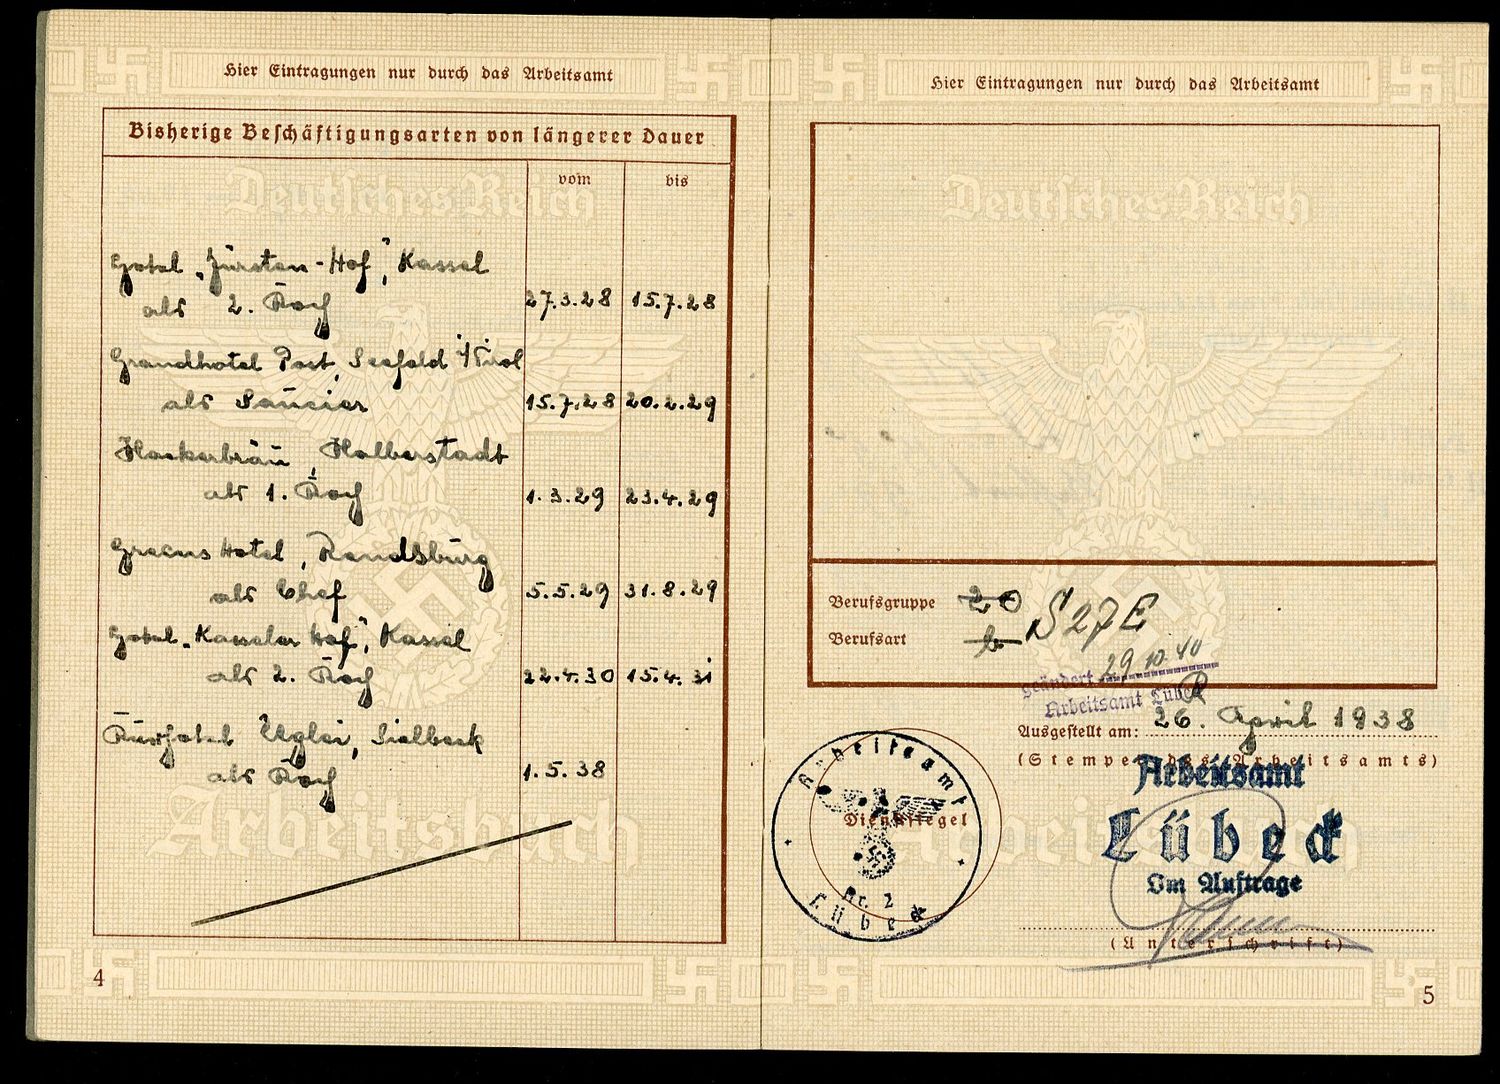 Hier Eintragungen nur durch das Arbeitsamt
Bisherige Beschäftigungsarten von längerer Dauer
vom bis
Deutsches Reich
Hotel „Fürsten-Hof", Kassel
als 2. Koch 27.3.28 15.7.28
Grandhotel Post, Seefeld i/Tirol
als Saucier 15.7.28 20.2.29
Hackerbräu, Halberstadt
als 1. Koch 1.3.29 23.4.29
Greens Hotel, Rendsburg
als Chef 5.5.29 31.8.29
Hotel „Kasseler Hof", Kassel
als 2. Koch 22.4.30 15.4.31
Kurhotel Uglei, Sielbeck
als Koch 1.5.38
Arbeitsbuch
4
Hier Eintragungen nur durch das Arbeitsamt
Deutsches Reich
Berufsgruppe 20 S27E
Berufsart b
Geändert 29.10.40
Arbeitsamt Lübeck
Ausgestellt am: 26. April 1938
(Stempel des Arbeitsamts)
Arbeitsamt
Lübeck
Im Auftrage
(Unterschrift)
Arbeitsamt
Dienstsiegel
Nr. 2
Lübeck
Arbeitsbuch
5